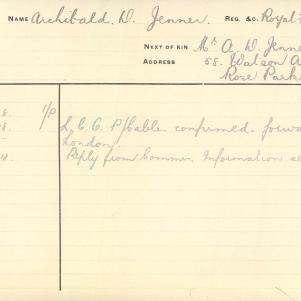 NAME Archibald. D. Jenner. REG. &C. Royal
NEXT OF KIN Mr A. D. Jenner
ADDRESS 58. Watson A
Rose Park
8. 1/P L. C. C. P/Cable. confirmed. forwa
London.
Reply from Commr. Information se